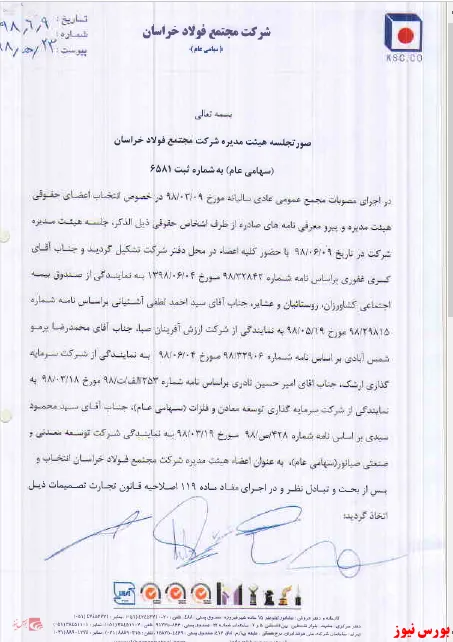 شرکت مجتمع فولاد خراسان
(سهامی عام)
KSC.CO
تاریخ: ۹۸،۶،۹
شماره:
پیوست:
بسمه تعالی
صورتجلسه هیئت مدیره شرکت مجتمع فولاد خراسان
(سهامی عام) به شماره ثبت ۶۵۸۱
در اجرای مصوبات مجمع عمومی عادی سالیانه مورخ ۹۸/۰۳/۰۹ در خصوص انتخاب اعضای حقوقی
هیئت مدیره و پیرو معرفی نامه های صادره از طرف اشخاص حقوقی ذیل الذکر، جلسه هیئت مدیره
شرکت در تاریخ ۹۸/۰۶/۰۹ با حضور کلیه اعضاء در محل دفتر شرکت تشکیل گردید و جناب آقای
کسری غفوری براساس نامه شماره ۹۸/۳۲۸۴۲ مورخ ۱۳۹۸/۰۶/۰۴ به نمایندگی از صندوق بیمه
اجتماعی کشاورزان، روستائیان و عشایر، جناب آقای سید احمد لطفی آشتیانی براساس نامه شماره
۹۸/۲۹۸۱۵ مورخ ۹۸/۰۵/۱۹ به نمایندگی از شرکت ارزش آفرینان صبا، جناب آقای محمدرضا برمو
شمس آبادی بر اساس نامه شماره ۹۸/۳۲۹۰۶ مورخ ۹۸/۰۶/۰۴ به نمایندگی از شرکت سرمایه
گذاری ارشک، جناب آقای امیر حسین نادری براساس نامه شماره ۲۵۳/الف/ت/۹۸ مورخ ۹۸/۰۳/۱۸ به
نمایندگی از شرکت سرمایه گذاری توسعه معادن و فلزات (سهامی عام)، جناب آقای سید محمود
سیدی بر اساس نامه شماره ۴۲۸/ص/۹۸ مورخ ۹۸/۰۳/۱۹ به نمایندگی شرکت توسعه معدنی و
صنعتی صبانور(سهامی عام)، به عنوان اعضاء هیئت مدیره شرکت مجتمع فولاد خراسان انتخاب و
پس از بحث و تبادل نظر و در اجرای مفاد ماده ۱۱۹ اصلاحیه قانون تجارت تصمیمات ذیل
اتخاذ گردید:
بورس نیوز